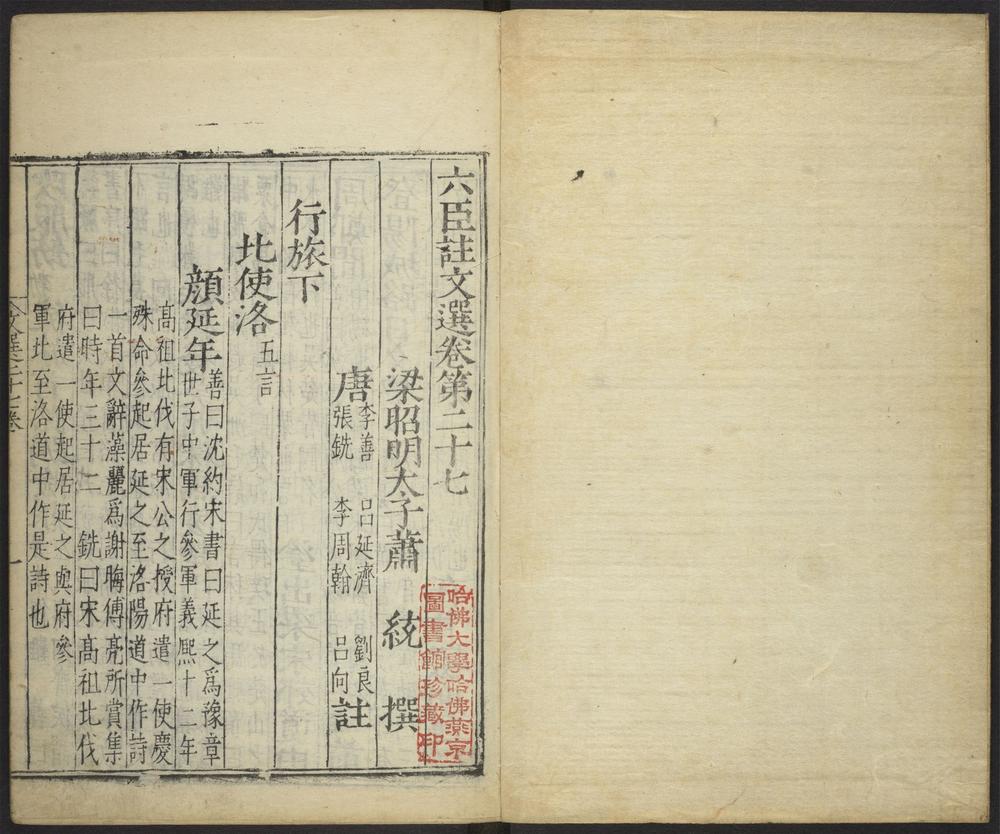 六臣註文選卷第二十七
梁昭明太子蕭統撰
唐李善呂延濟劉良
張銑李周翰呂向註
行旅下
北使洛五言
顏延年善曰沈約宋書曰延之爲豫章
世子中軍行參軍義熙十二年
高祖北伐有宋公之授府遣一使慶
殊命參起居延之至洛陽道中作詩
一首文辭藻麗爲謝晦傅亮所賞集
曰時年三十二銑曰宋高祖北伐
府遣一使起居延之與府參
軍北至洛道中作是詩也
文選二十七卷
一
哈佛大學哈佛燕京
圖書館珍藏印